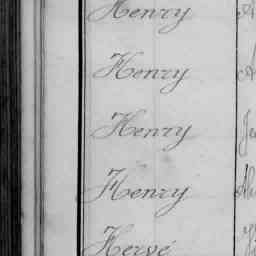 Henry
Henry
Henry
Henry
Hervé